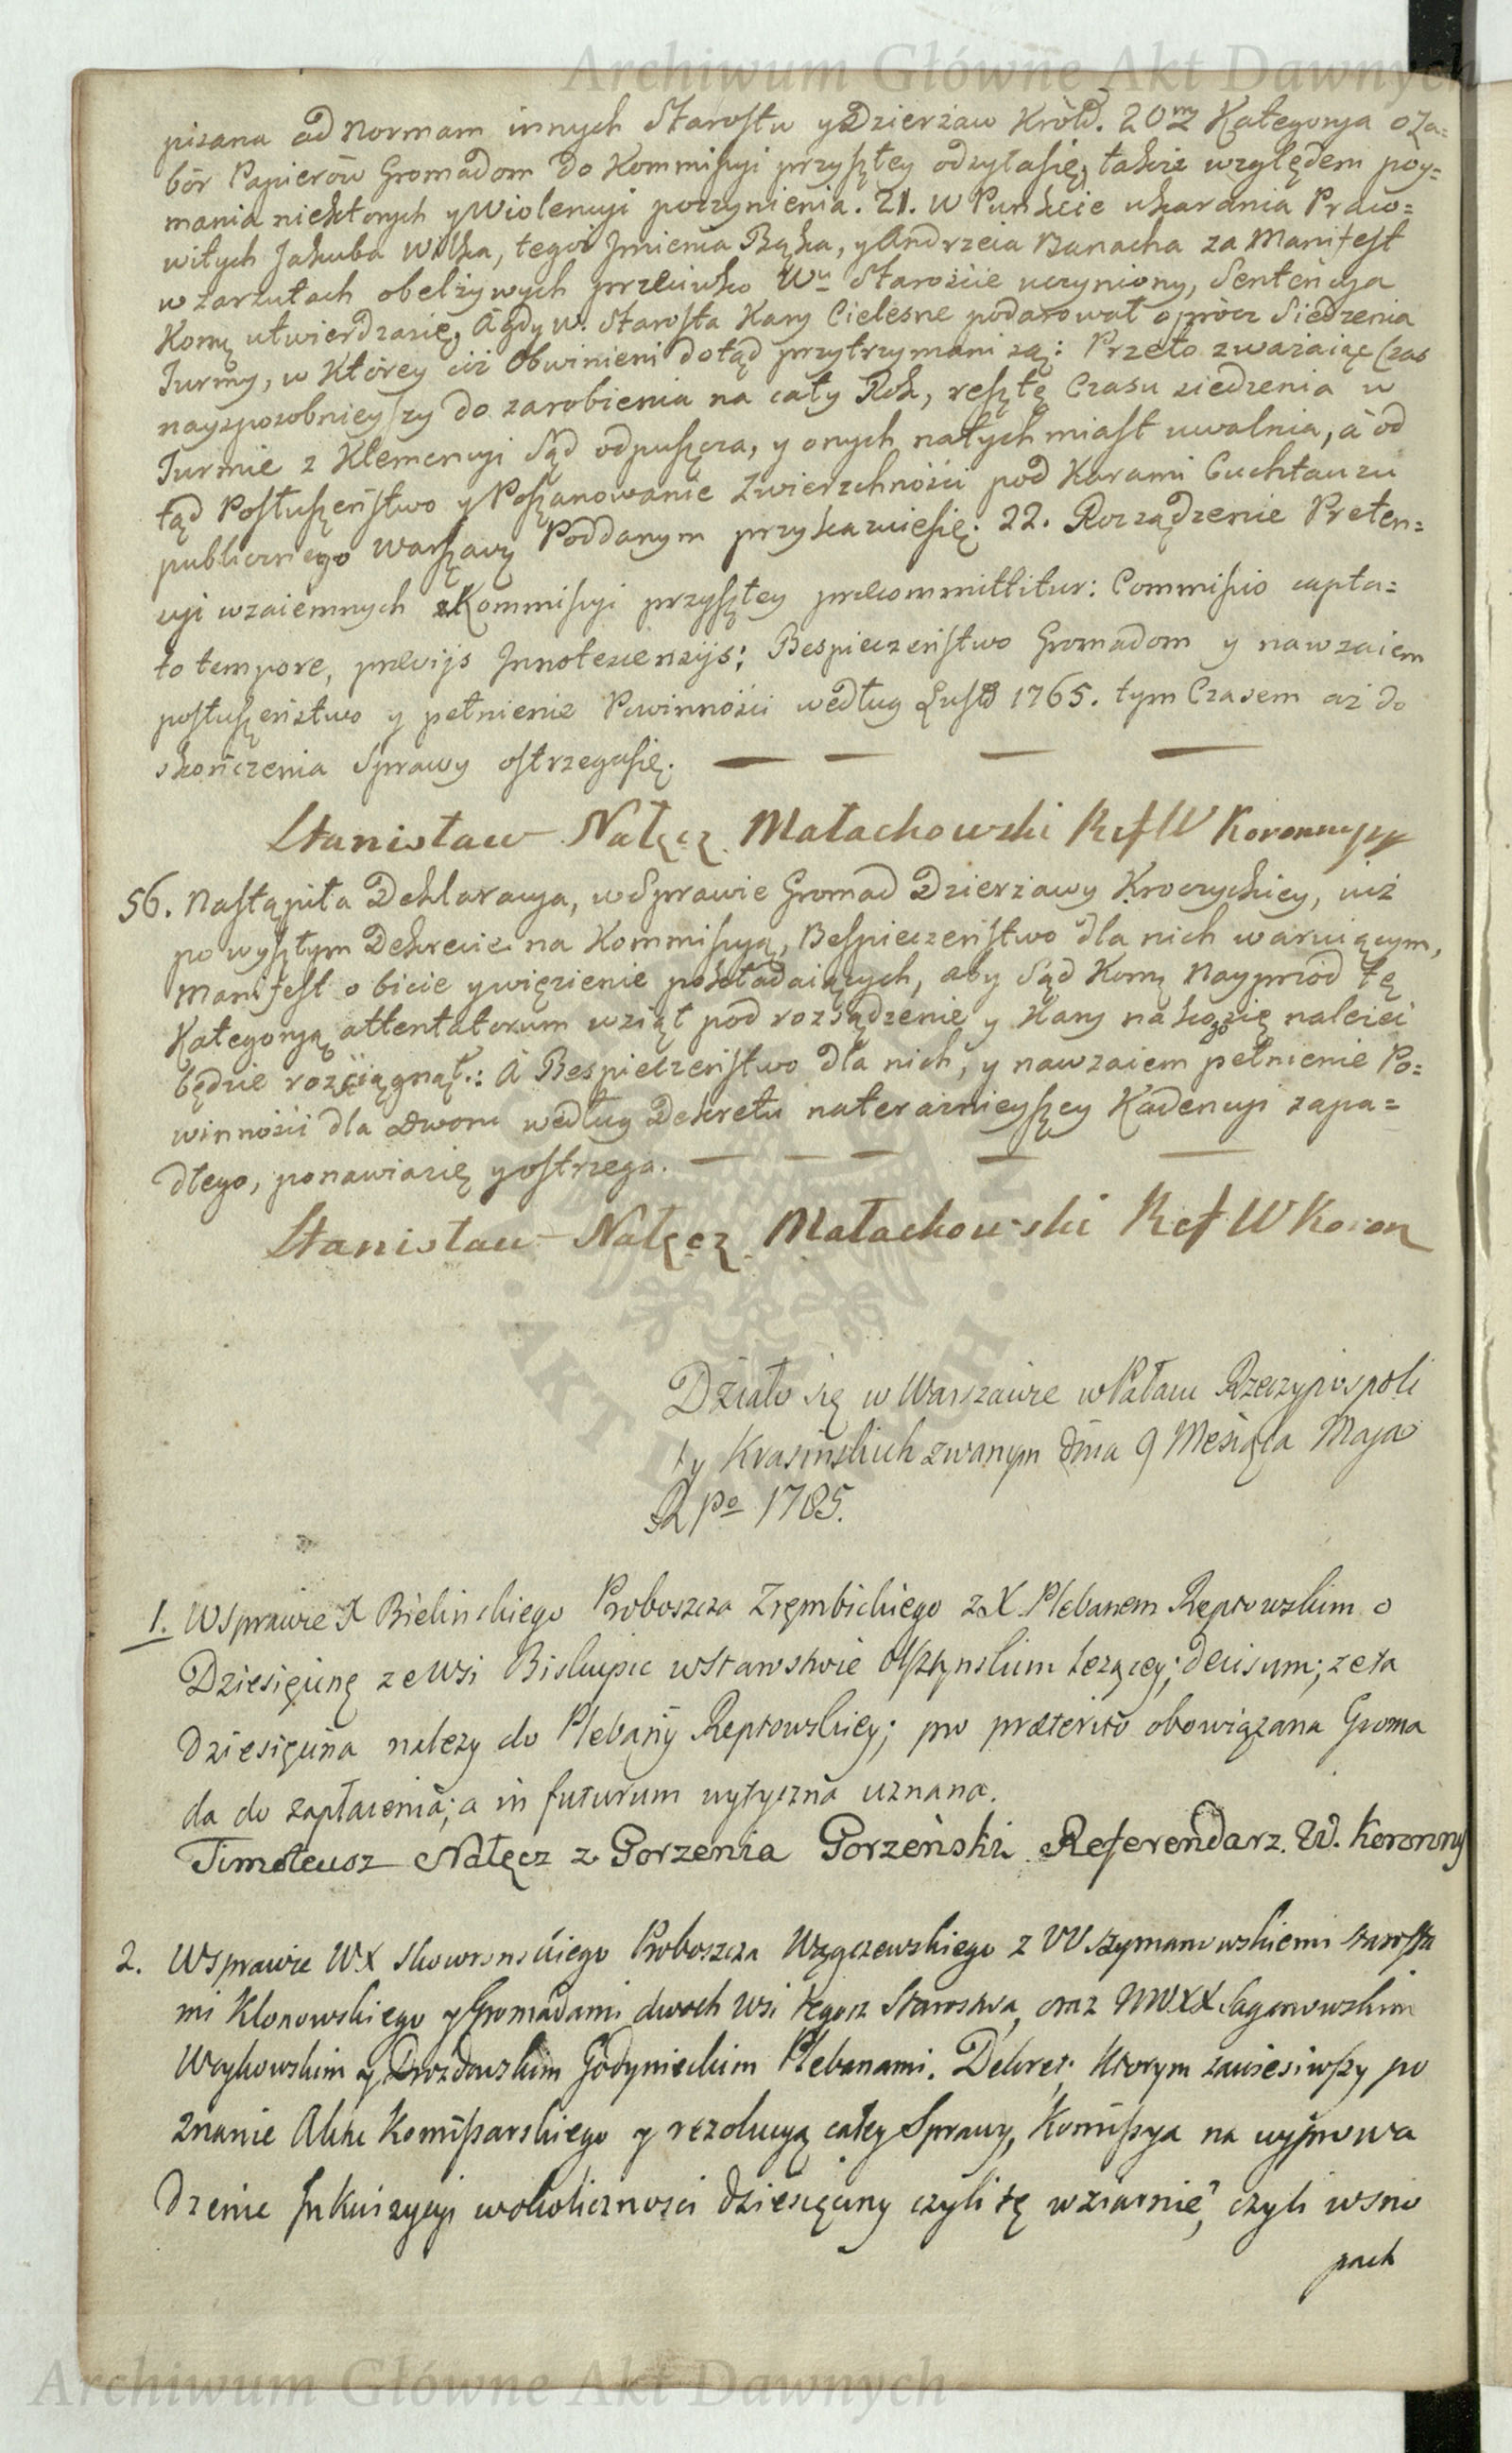 Archiwum Główne Akt Dawnych
pisana ad normam innych Starostw y Dzierżaw Król. 20ma Kategorya o Za=
bór Papierów Gromadom do Kommissyi przyszłey odsyłasię, także względem poy=
mania niektorych y Wiolencyi poczynienia. 21. W Punkcie ukarania Praco=
witych Jakuba Wilka, tegoż Jmienia Bąka, y Andrzeia Banacha za Manifest
w zarzutach obelżywych przeciwko Wu Staroście uczyniony, Sentencya
Komą utwierdzasię, A gdy w. Starosta Kary Cielesne podarował oprócz Siedzenia
Turmy, w Którey ciż Obwinieni dotąd przytrzymani są: Przeto zważaiąc Czas
naysposobnieyszy do zarobienia na cały Rok, resztę Czasu siedzenia w
Turmie z Klemencyi Sąd odpuszcza, y onych natychmiast uwalnia, à od
tąd Posłuszeństwo y Poszanowanie Zwierzchności pod Karami Cuchtauzu
publicznego Warszawy Poddanym przykazuiesię. 22. Rozsądzenie Preten=
cyi wzaiemnych Kommissyi przyszłey præcommittitur: Commissio capta=
to tempore, prævijs Innotescensijs; Bespieczeństwo Gromadom y nawzaiem
posłuszeństwo y pełnienie Powinności według Lust 1765. tym Czasem aż do
skończenia Sprawy ostrzegasię.
Stanisław Nałęcz Małachowski Ref W Koronnyy
56. Nastąpiła Deklaracya, w Sprawie Gromad Dzierżawy Kroczyckiey, iuż
po wyszłym Dekrecie na Kommissyą, Bespieczeństwo dla nich waruiącym,
Manifest o bicie y więzienie pokładaiących, aby Sąd Komą Nayprzód tę
Kategoryą attentatorum wziął pod rozsądzenie y Kary na kogo się należeć
będzie rozciągnął: A Bespieczeństwo dla nich, y nawzaiem pełnienie Po=
winności dla Dworu według Dekretu na teraznieyszey Kadencyi zapa=
dłego, ponawiasię y ostrzega.
Stanisław Nałęcz Małachowski Ref W Koron
Działo się w Warszawie w Pałacu Rzeczypospoli
ty Krasinskich zwanym dnia 9 Mesiąca Maja
R Po 1785.
1. W sprawie X Bielinskiego Proboszcza Zrembickiego z X. Plebanem Reptowskim o
Dziesięcinę ze Wsi Biskupic w Starostwie Olsztynskim leżącey; decisum; ze ta
Dziesięcina należy do Plebanij Reptowskiey; pro præterito obowiązana Groma
da do zapłacenia; a in futurum wytyczna uznana.
Timoteusz Nałęcz z Gorzenia Gorzeński Referendarz. W. Koronny
2. W sprawie WX Skowronskiego Proboszcza Wągczewskiego z WW Szymanowskiemi Starosta
mi Klonowskiego y Gromadami dwoch wsi tegoz Starostwa, oraz WWXX Saganowskim
Woykowskim y Drozdowskim Godynickim Plebanami. Dekret, Ktorym zawiesiwszy po
znanie Aktu Komissarskiego y rezolucyą całey Sprawy, Komissya na wyprowa
dzenie Inkwizycyi w okoliczności dziesięciny czyli tę w ziarnie, czyli w sno
pach
Archiwum Główne Akt Dawnych